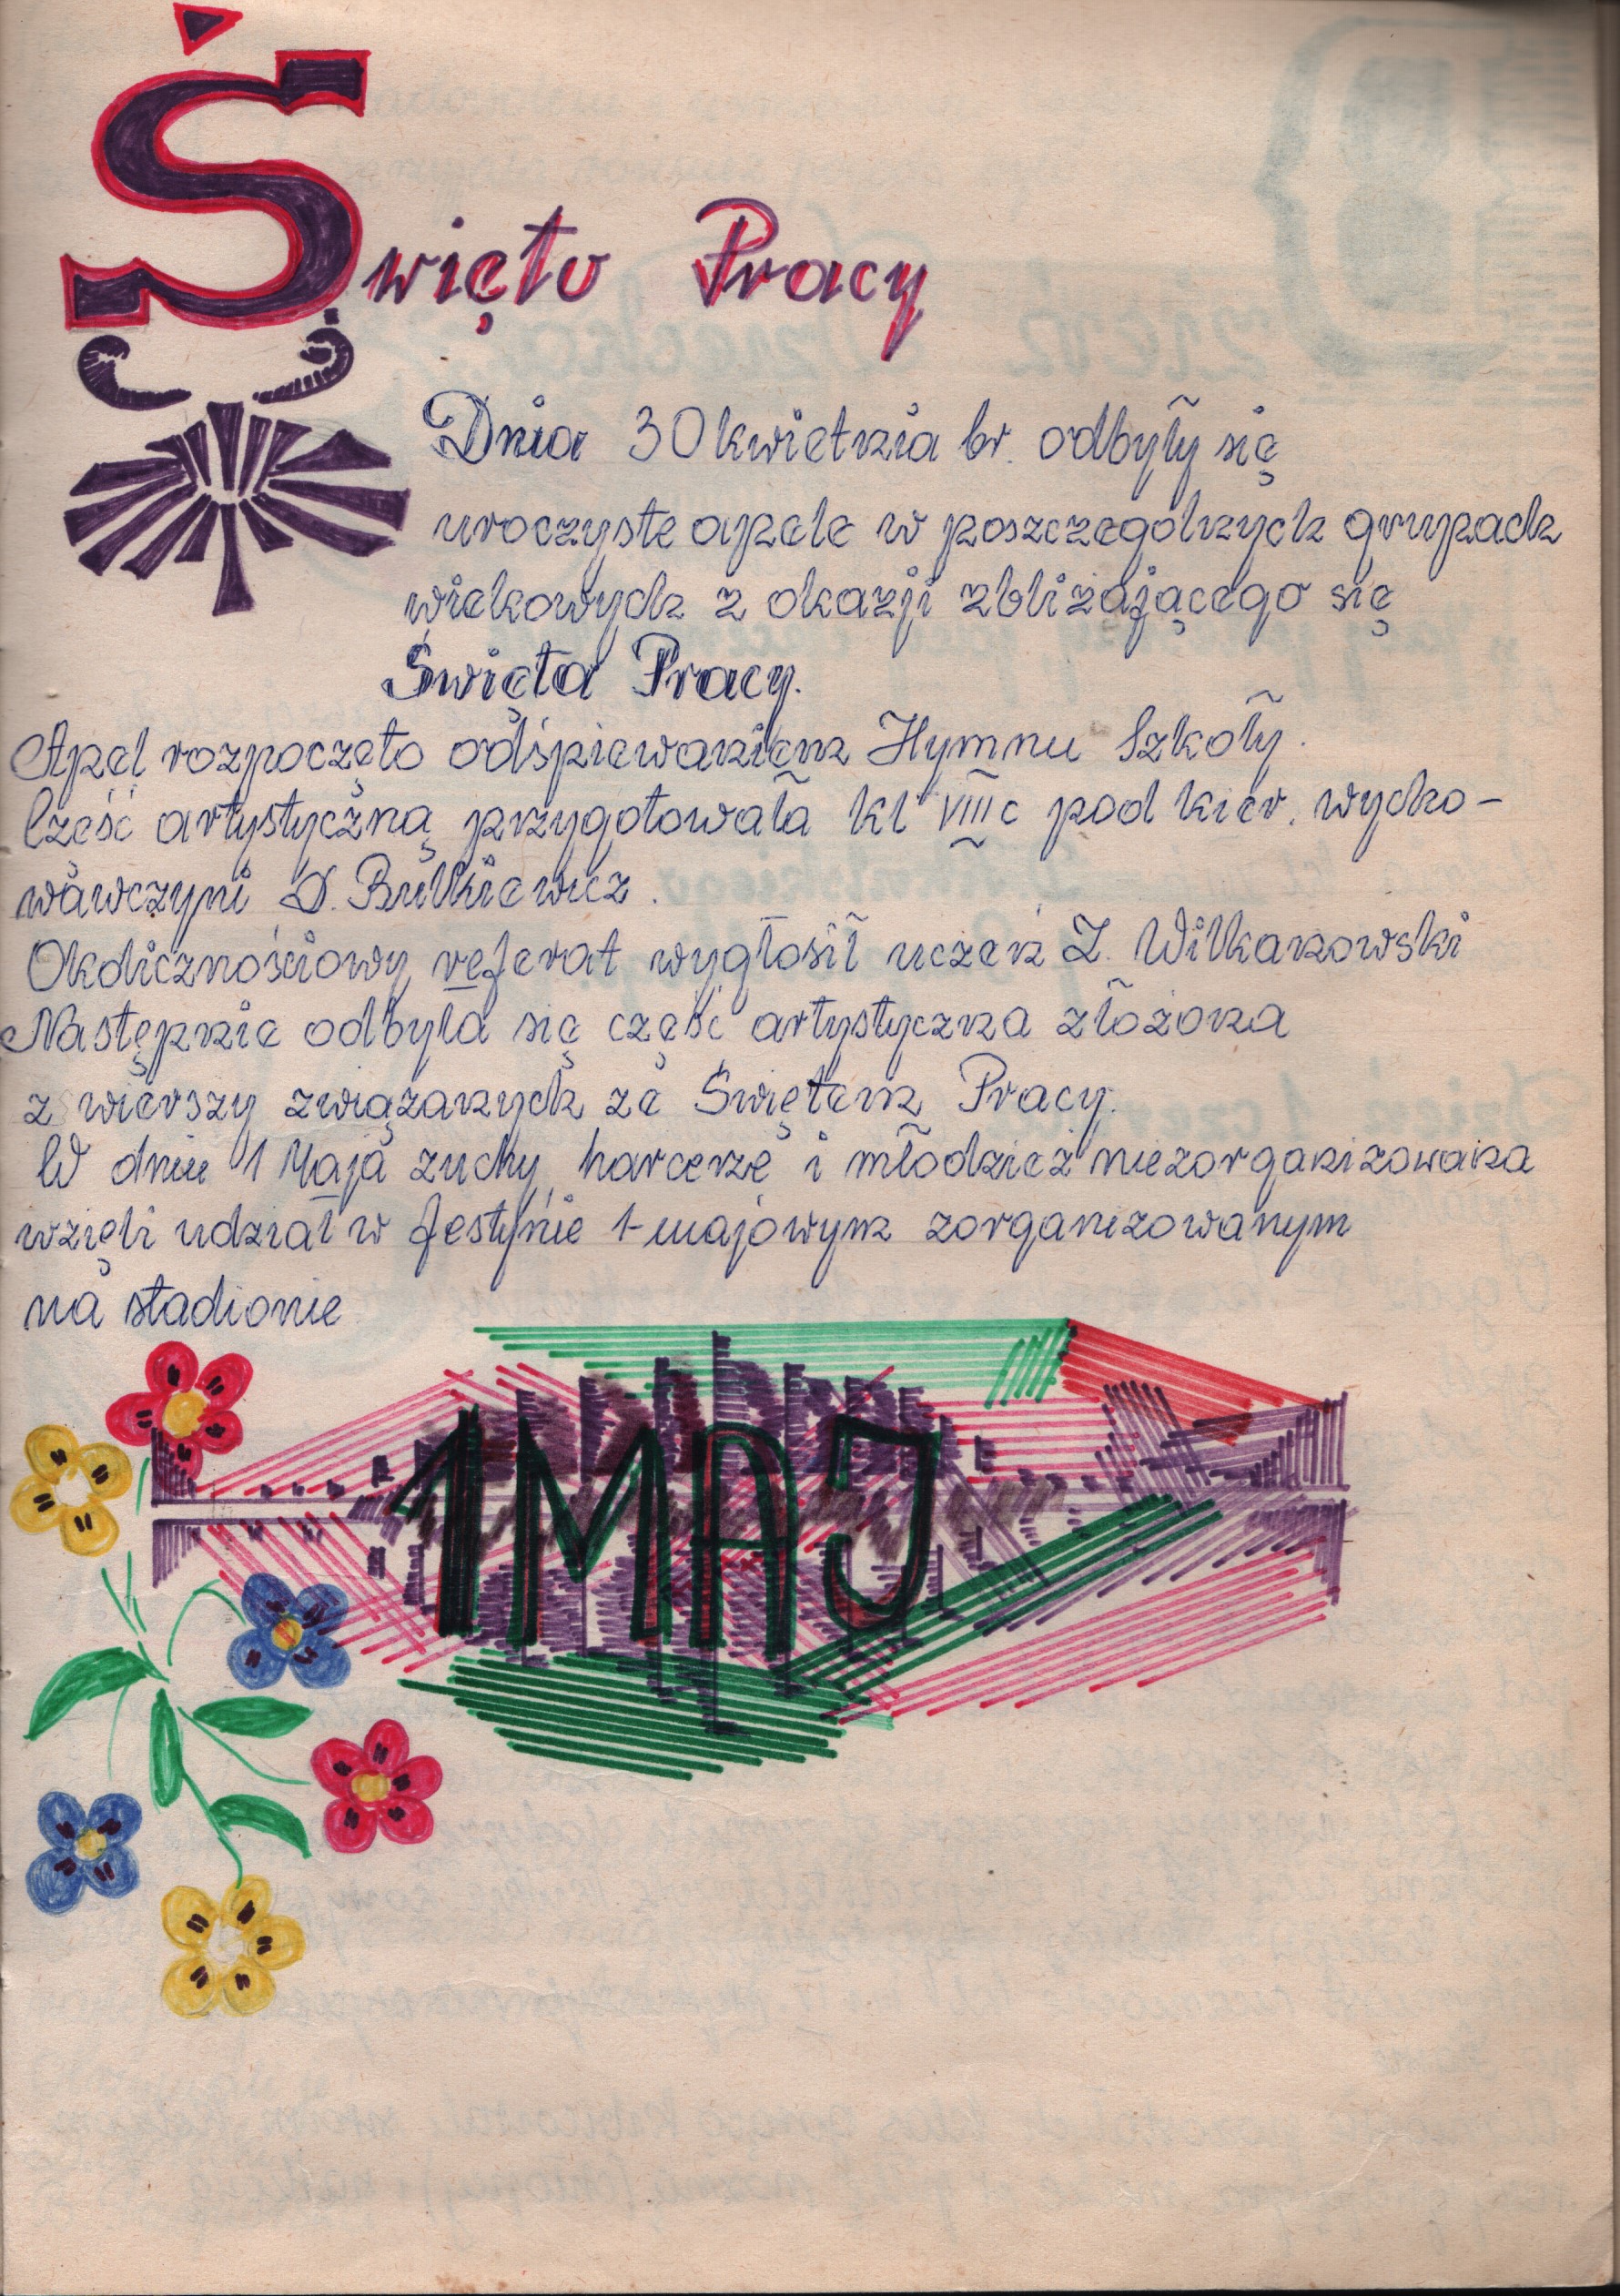 Święto Pracy
Dnia 30 kwietnia br. odbyły się
uroczyste apele w poszczególnych grupach
wiekowych z okazji zbliżającego się
Święta Pracy.
Apel rozpoczęto odśpiewaniem Hymnu Szkoły.
Część artystyczną przygotowała kl VIII c pod kier. wycho-
wawczyni D. Butkiewicz.
Okolicznościowy referat wygłosił uczeń Z. Wilkanowski
Następnie odbyła się część artystyczna złożona
z wierszy związanych ze Świętem Pracy.
W dniu 1 Maja zuchy, harcerze i młodzież niezorganizowana
wzięli udział w festynie 1-majowym zorganizowanym
na stadionie
1 MAJ